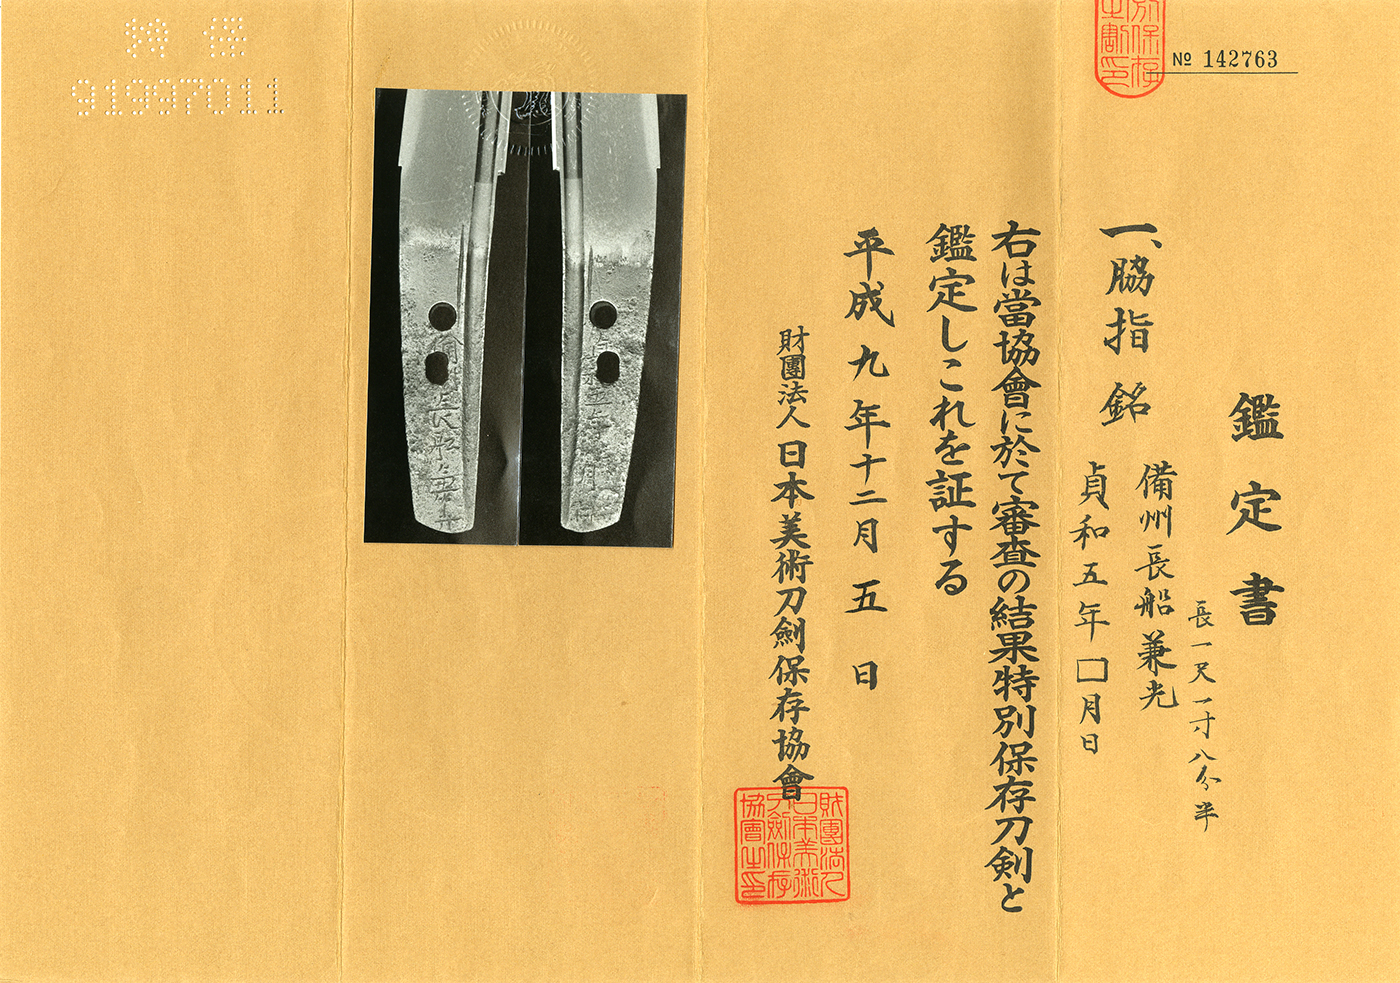 № 142763
鑑定書
長一尺一寸八分半
一、脇指 銘 備州長船兼光
貞和五年□月日
右は當協會に於て審査の結果特別保存刀剣と
鑑定しこれを証する
平成九年十二月五日
財團法人日本美術刀劍保存協會
財團法人
日本美術
刀劍保存
協會之印
91997011